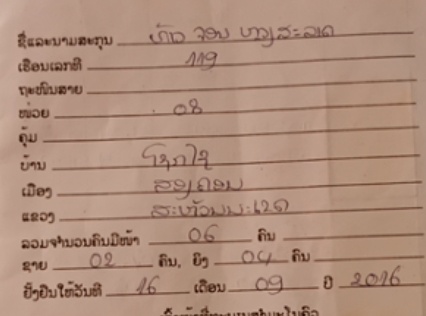 ຊື່ແລະນາມສະກຸນ ທ້າວ ຈອນ
ເຮືອນເລກທີ 119
ຖະໜົນສາຍ
ໜ່ວຍ 08
ຄຸ້ມ
ບ້ານ ໂຊກໄຊ
ເມືອງ ສອງຄອນ
ແຂວງ ສະຫວັນນະເຂດ
ລວມຈຳນວນຄົນມີໜ້າ 06 ຄົນ
ຊາຍ 02 ຄົນ, ຍິງ 04 ຄົນ
ຢັ້ງຢືນໃຫ້ວັນທີ 16 ເດືອນ 09 ປີ 2016